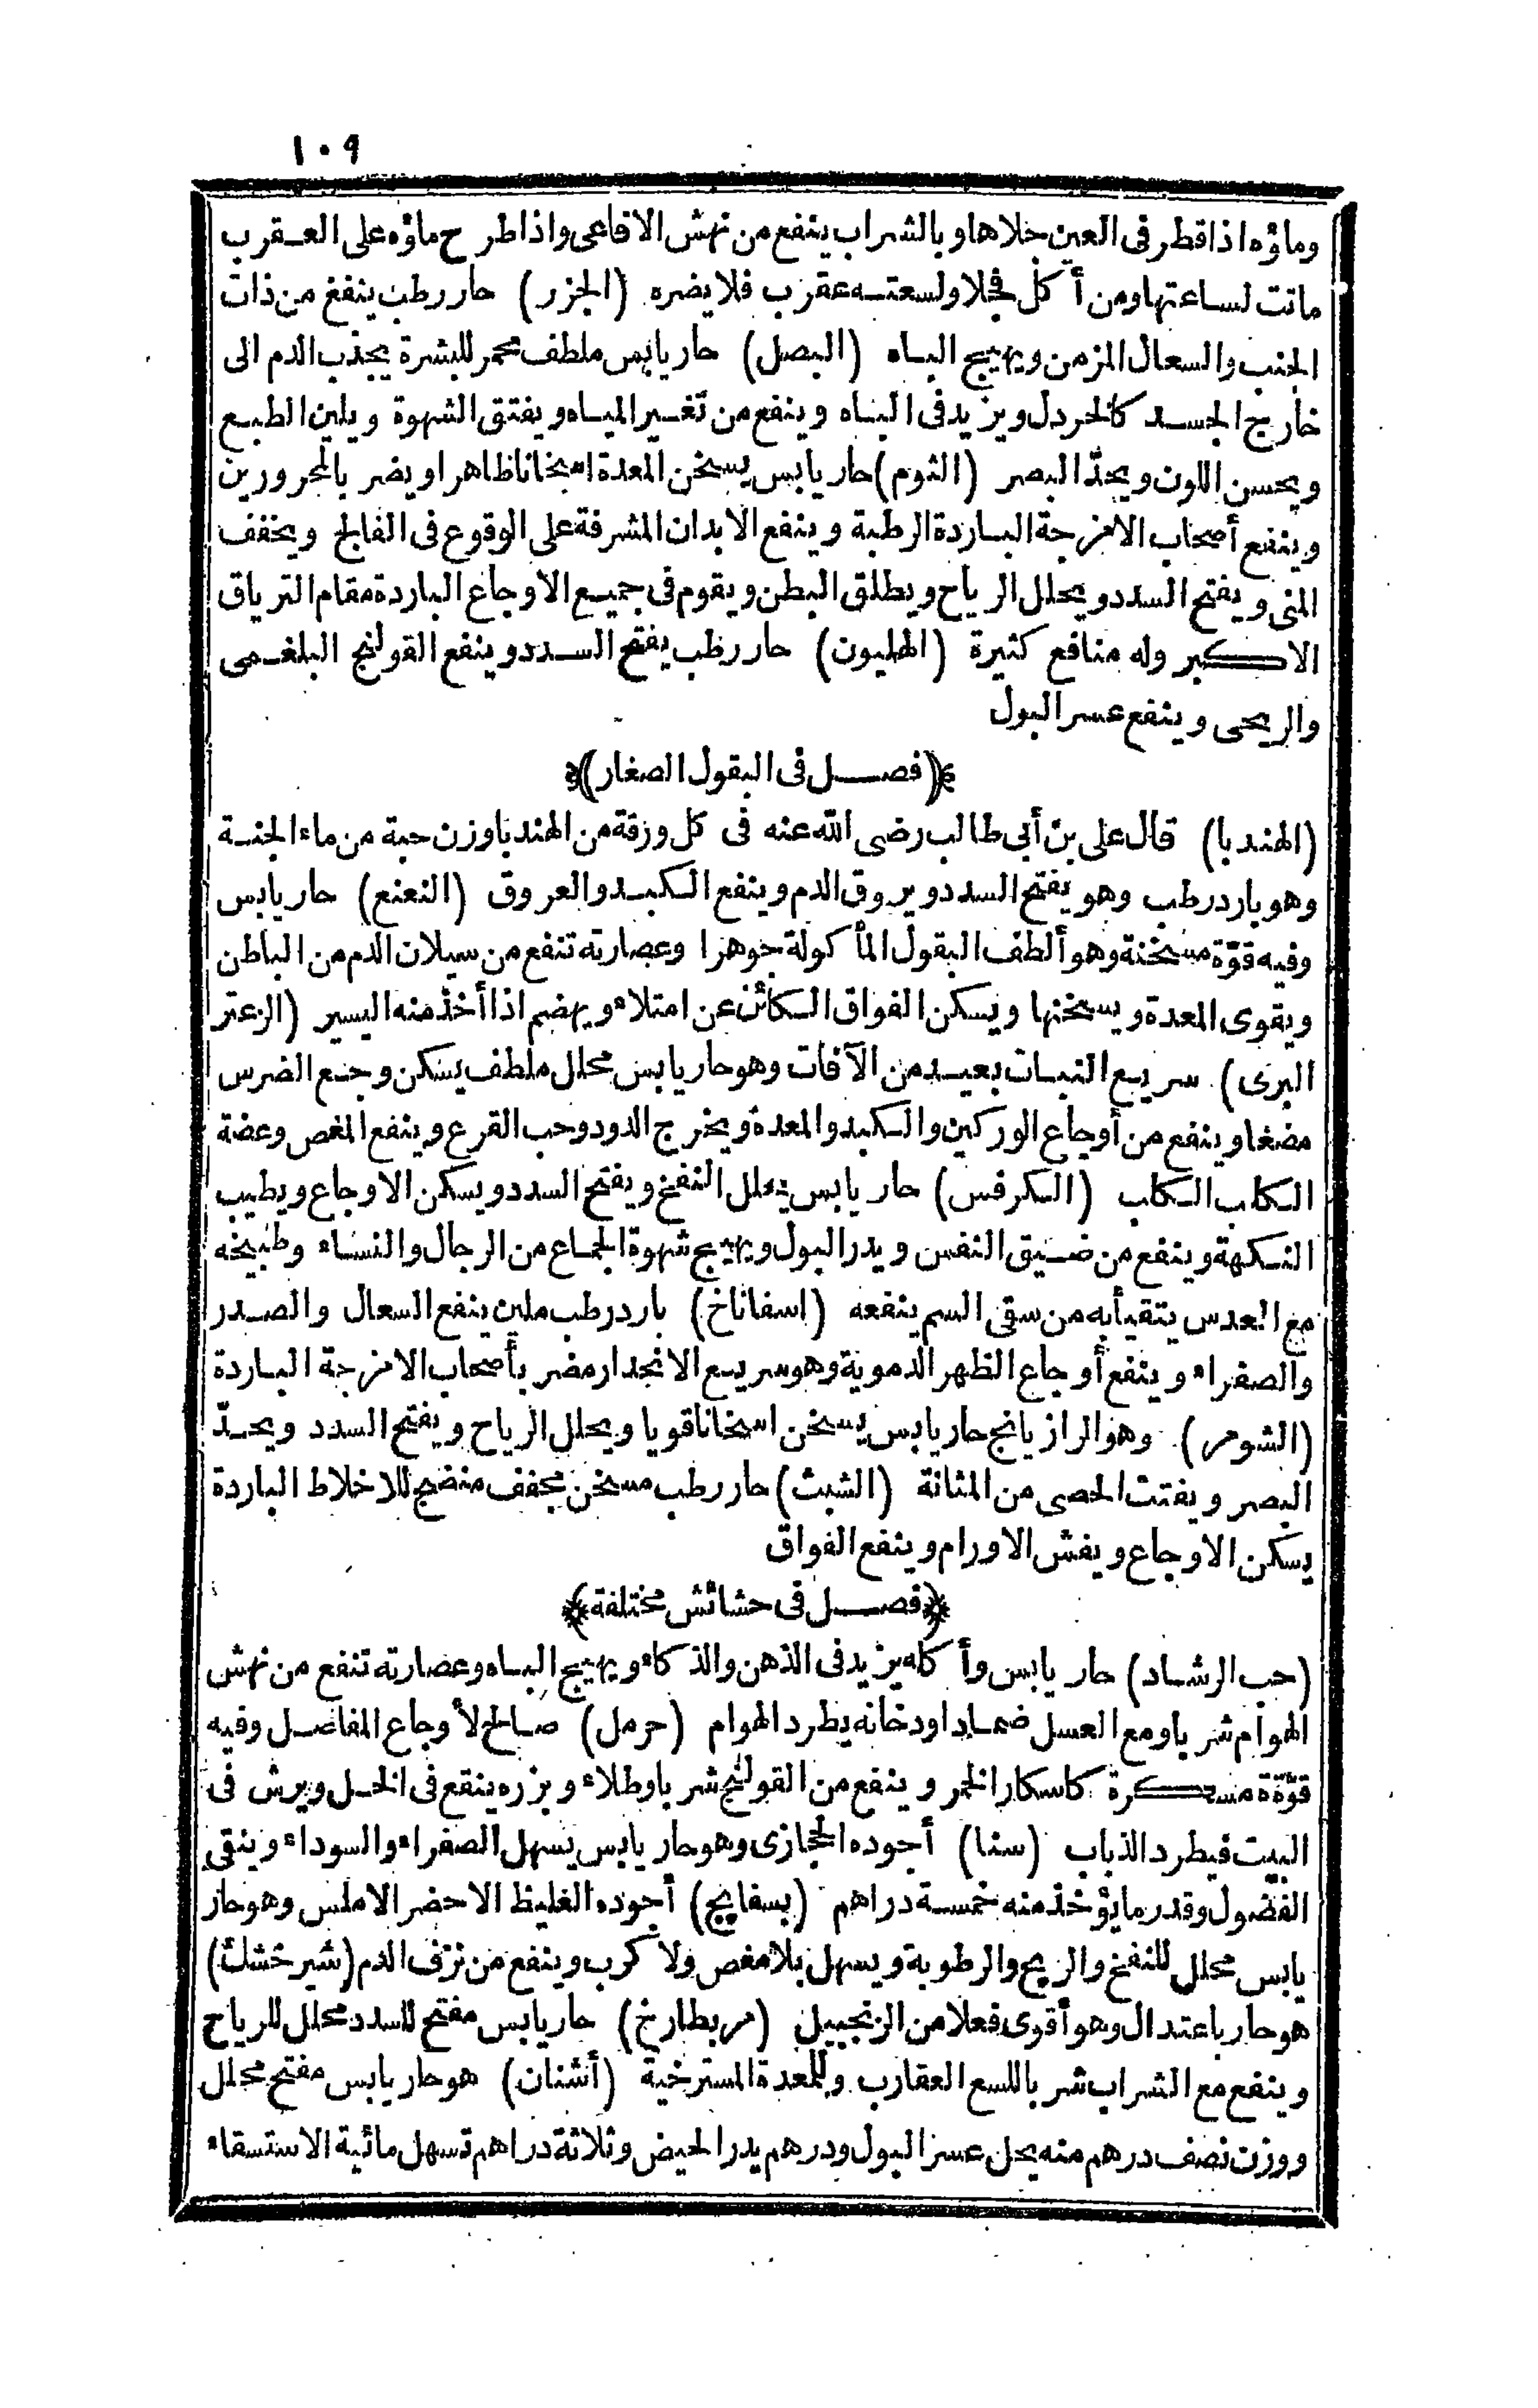 ١٠٩
وماؤه اذا قطر فى العين جلاها وبالشراب ينفع من نهش الافاعى واذا طرح ماؤه على العقرب
ماتت لساعتها ومن أكل فجلا ولسعته عقرب فلا يضره (الجزر) حار رطب ينفع من ذات
الجنب والسعال المزمن ويهيج الباه (البصل) حار يابس ملطف محمر للبشرة يجذب الدم الى
خارج الجسد كالخردل ويزيد فى الباه وينفع من تغير المياه ويفتق الشهوة ويلين الطبع
ويحسن اللون ويحدّ البصر (الثوم) حار يابس يسخن المعدة اسخانا ظاهرا ويضر بالمحرورين
وينفع أصحاب الامزجة الباردة الرطبة وينفع الابدان المشرفة على الوقوع فى الفالج ويخفف
المنى ويفتح السدد ويحلل الرياح ويطلق البطن ويقوم فى جميع الاوجاع الباردة مقام الترياق
الاكبر وله منافع كثيرة (الهليون) حار رطب يفتح السدد وينفع القولنج البلغمى
والريحى وينفع عسر البول
﴿(فصل فى البقول الصغار)﴾
(الهندبا) قال على بن أبى طالب رضى الله عنه فى كل ورقة من الهندبا وزن حبة من ماء الجنة
وهو بارد رطب وهو يفتح السدد ويروق الدم وينفع الكبد والعروق (النعنع) حار يابس
وفيه قوّة مسخنة وهو ألطف البقول المأكولة جوهرا وعصارته تنفع من سيلان الدم من الباطن
ويقوى المعدة ويسخنها ويسكن الفواق الكائن عن امتلاء ويهضم اذا أخذ منه اليسير (الزعتر
البرى) سريع النبات بعيد من الآفات وهو حار يابس محلل ملطف يسكن وجع الضرس
مضغا وينفع من أوجاع الوركين والكبد والمعدة ويخرج الدود وحب القرع وينفع المغص وعضة
الكلب الكلب (الكرفس) حار يابس يحلل النفخ ويفتح السدد ويسكن الاوجاع ويطيب
النكهة وينفع من ضيق النفس ويدر البول ويهيج شهوة الجماع من الرجال والنساء وطبيخه
مع العدس يتقيأ به من سقى السم ينفعه (اسفاناخ) بارد رطب ملين ينفع السعال والصدر
والصفراء وينفع أوجاع الظهر الدموية وهو سريع الانحدار مضر بأصحاب الامزجة الباردة
(الشومر) وهو الرازيانج حار يابس يسخن اسخانا قويا ويحلل الرياح ويفتح السدد ويحدّ
البصر ويفتت الحصى من المثانة (الشبث) حار رطب مسخن مجفف منضج للاخلاط الباردة
يسكن الاوجاع ويفش الاورام وينفع الفواق
﴿فصل فى حشائش مختلفة﴾
(حب الرشاد) حار يابس وأكله يزيد فى الذهن والذكاء ويهيج الباه وعصارته تنفع من نهش
الهوام شربا ومع العسل ضمادا ودخانه يطرد الهوام (حرمل) صالح لأوجاع المفاصل وفيه
قوّة مسكرة كاسكار الخمر وينفع من القولنج شربا وطلاء وبزره ينقع فى الخل ويرش فى
البيت فيطرد الذباب (سنا) أجوده الحجازى وهو حار يابس يسهل الصفراء والسوداء وينقى
الفضول وقدر ما يؤخذ منه خمسة دراهم (بسفايج) أجوده الغليظ الاخضر الاملس وهو حار
يابس محلل للنفخ والريح والرطوبة ويسهل بلا مغص ولا كرب وينفع من نزف الدم (شيرخشك)
هو حار باعتدال وهو أقوى فعلا من الزنجبيل (مربطارخ) حار يابس مفتح للسدد محلل للرياح
وينفع مع الشراب شربا للسع العقارب وللمعدة المسترخية (أشنان) هو حار يابس مفتح محلل
ووزن نصف درهم منه يحل عسر البول ودرهم يدر الحيض وثلاثة دراهم تسهل مائية الاستسقاء